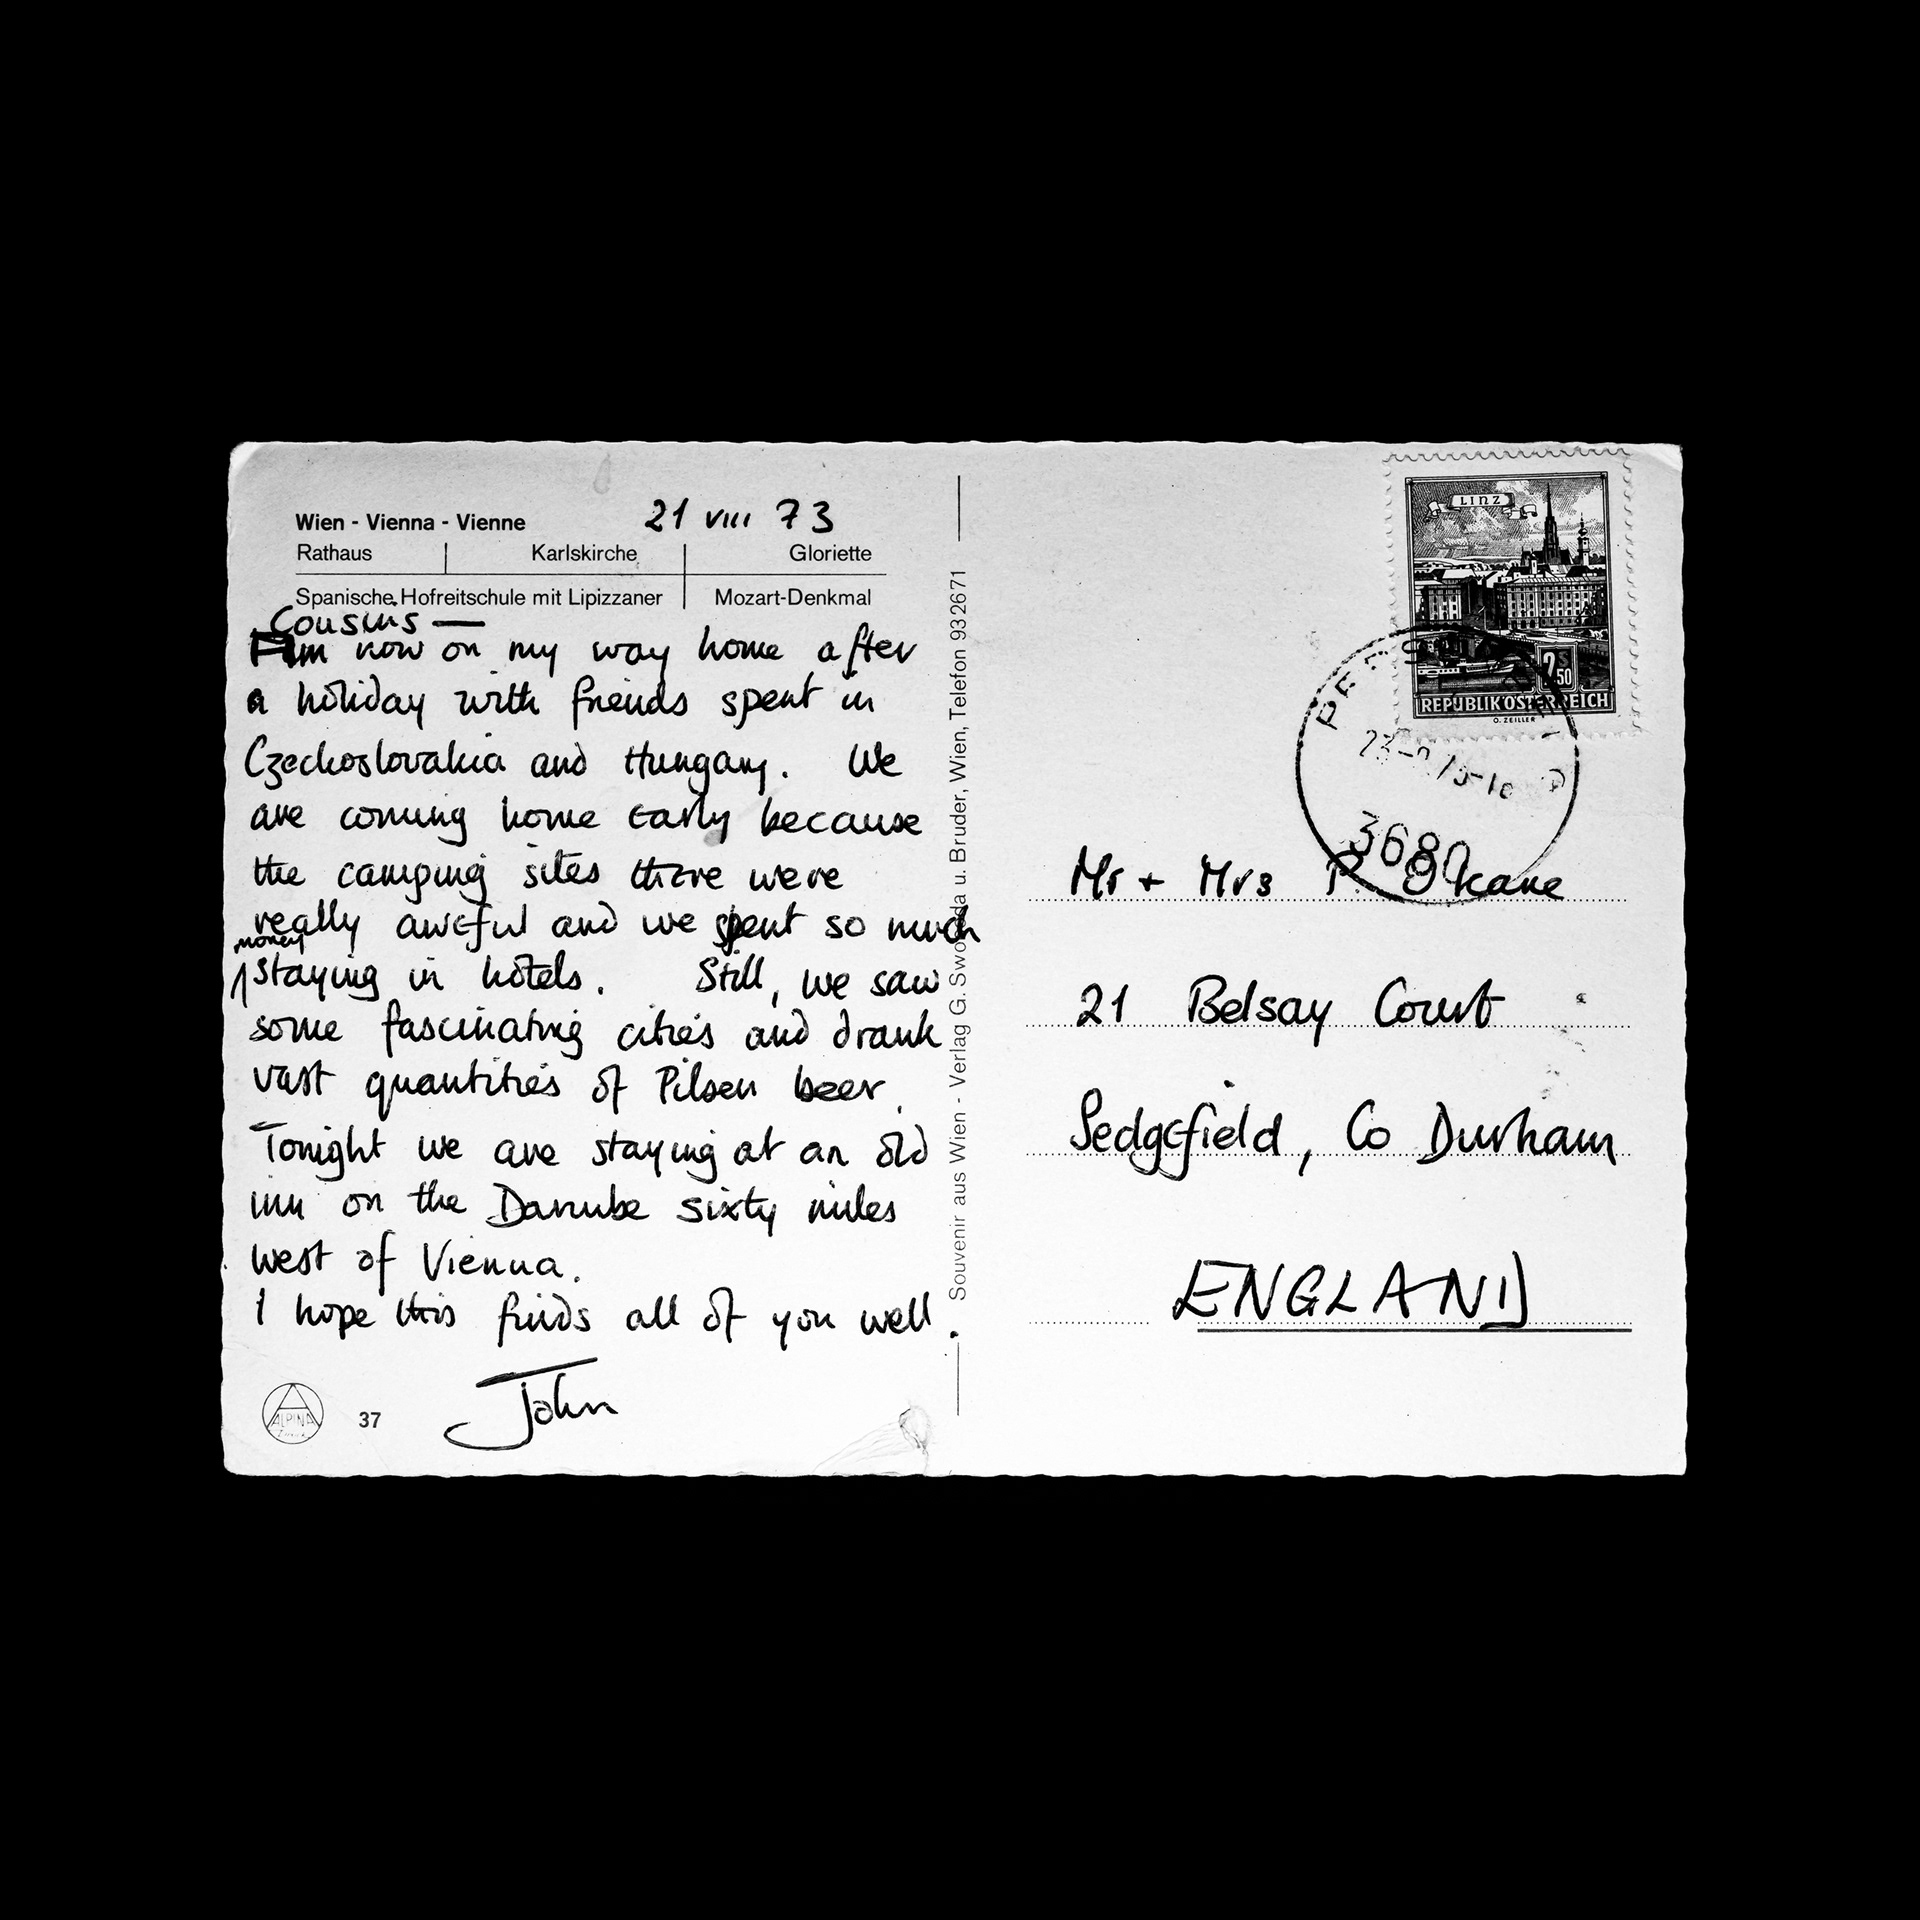 Wien - Vienna - Vienne
21 VIII 73
Rathaus Karlskirche Gloriette
Spanische Hofreitschule mit Lipizzaner Mozart-Denkmal
Cousins —
I'm now on my way home after
a holiday with friends spent in
Czechoslovakia and Hungary. We
are coming home early because
the camping sites there were
really awful and we spent so much
money
staying in hotels. Still, we saw
some fascinating cities and drank
vast quantities of Pilsen beer.
Tonight we are staying at an old
inn on the Danube sixty miles
west of Vienna.
I hope this finds all of you well.
John
ALPINA
37
Souvenir aus Wien - Verlag G. Swoboda u. Bruder, Wien, Telefon 932671
LINZ
2 S 50
REPUBLIK ÖSTERREICH
O. ZEILLER
3680
Mr + Mrs P. O'Kane
21 Belsay Court
Sedgefield, Co Durham
ENGLAND